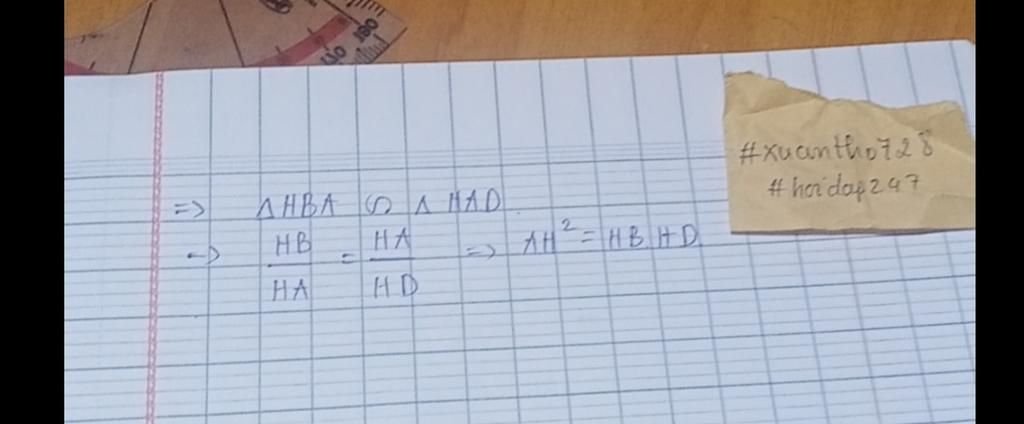 180
170
#xuantho728
#hoidap247
=> ΔHBA ∽ Δ HAD
=> HB/HA = HA/HD => AH² = HB.HD